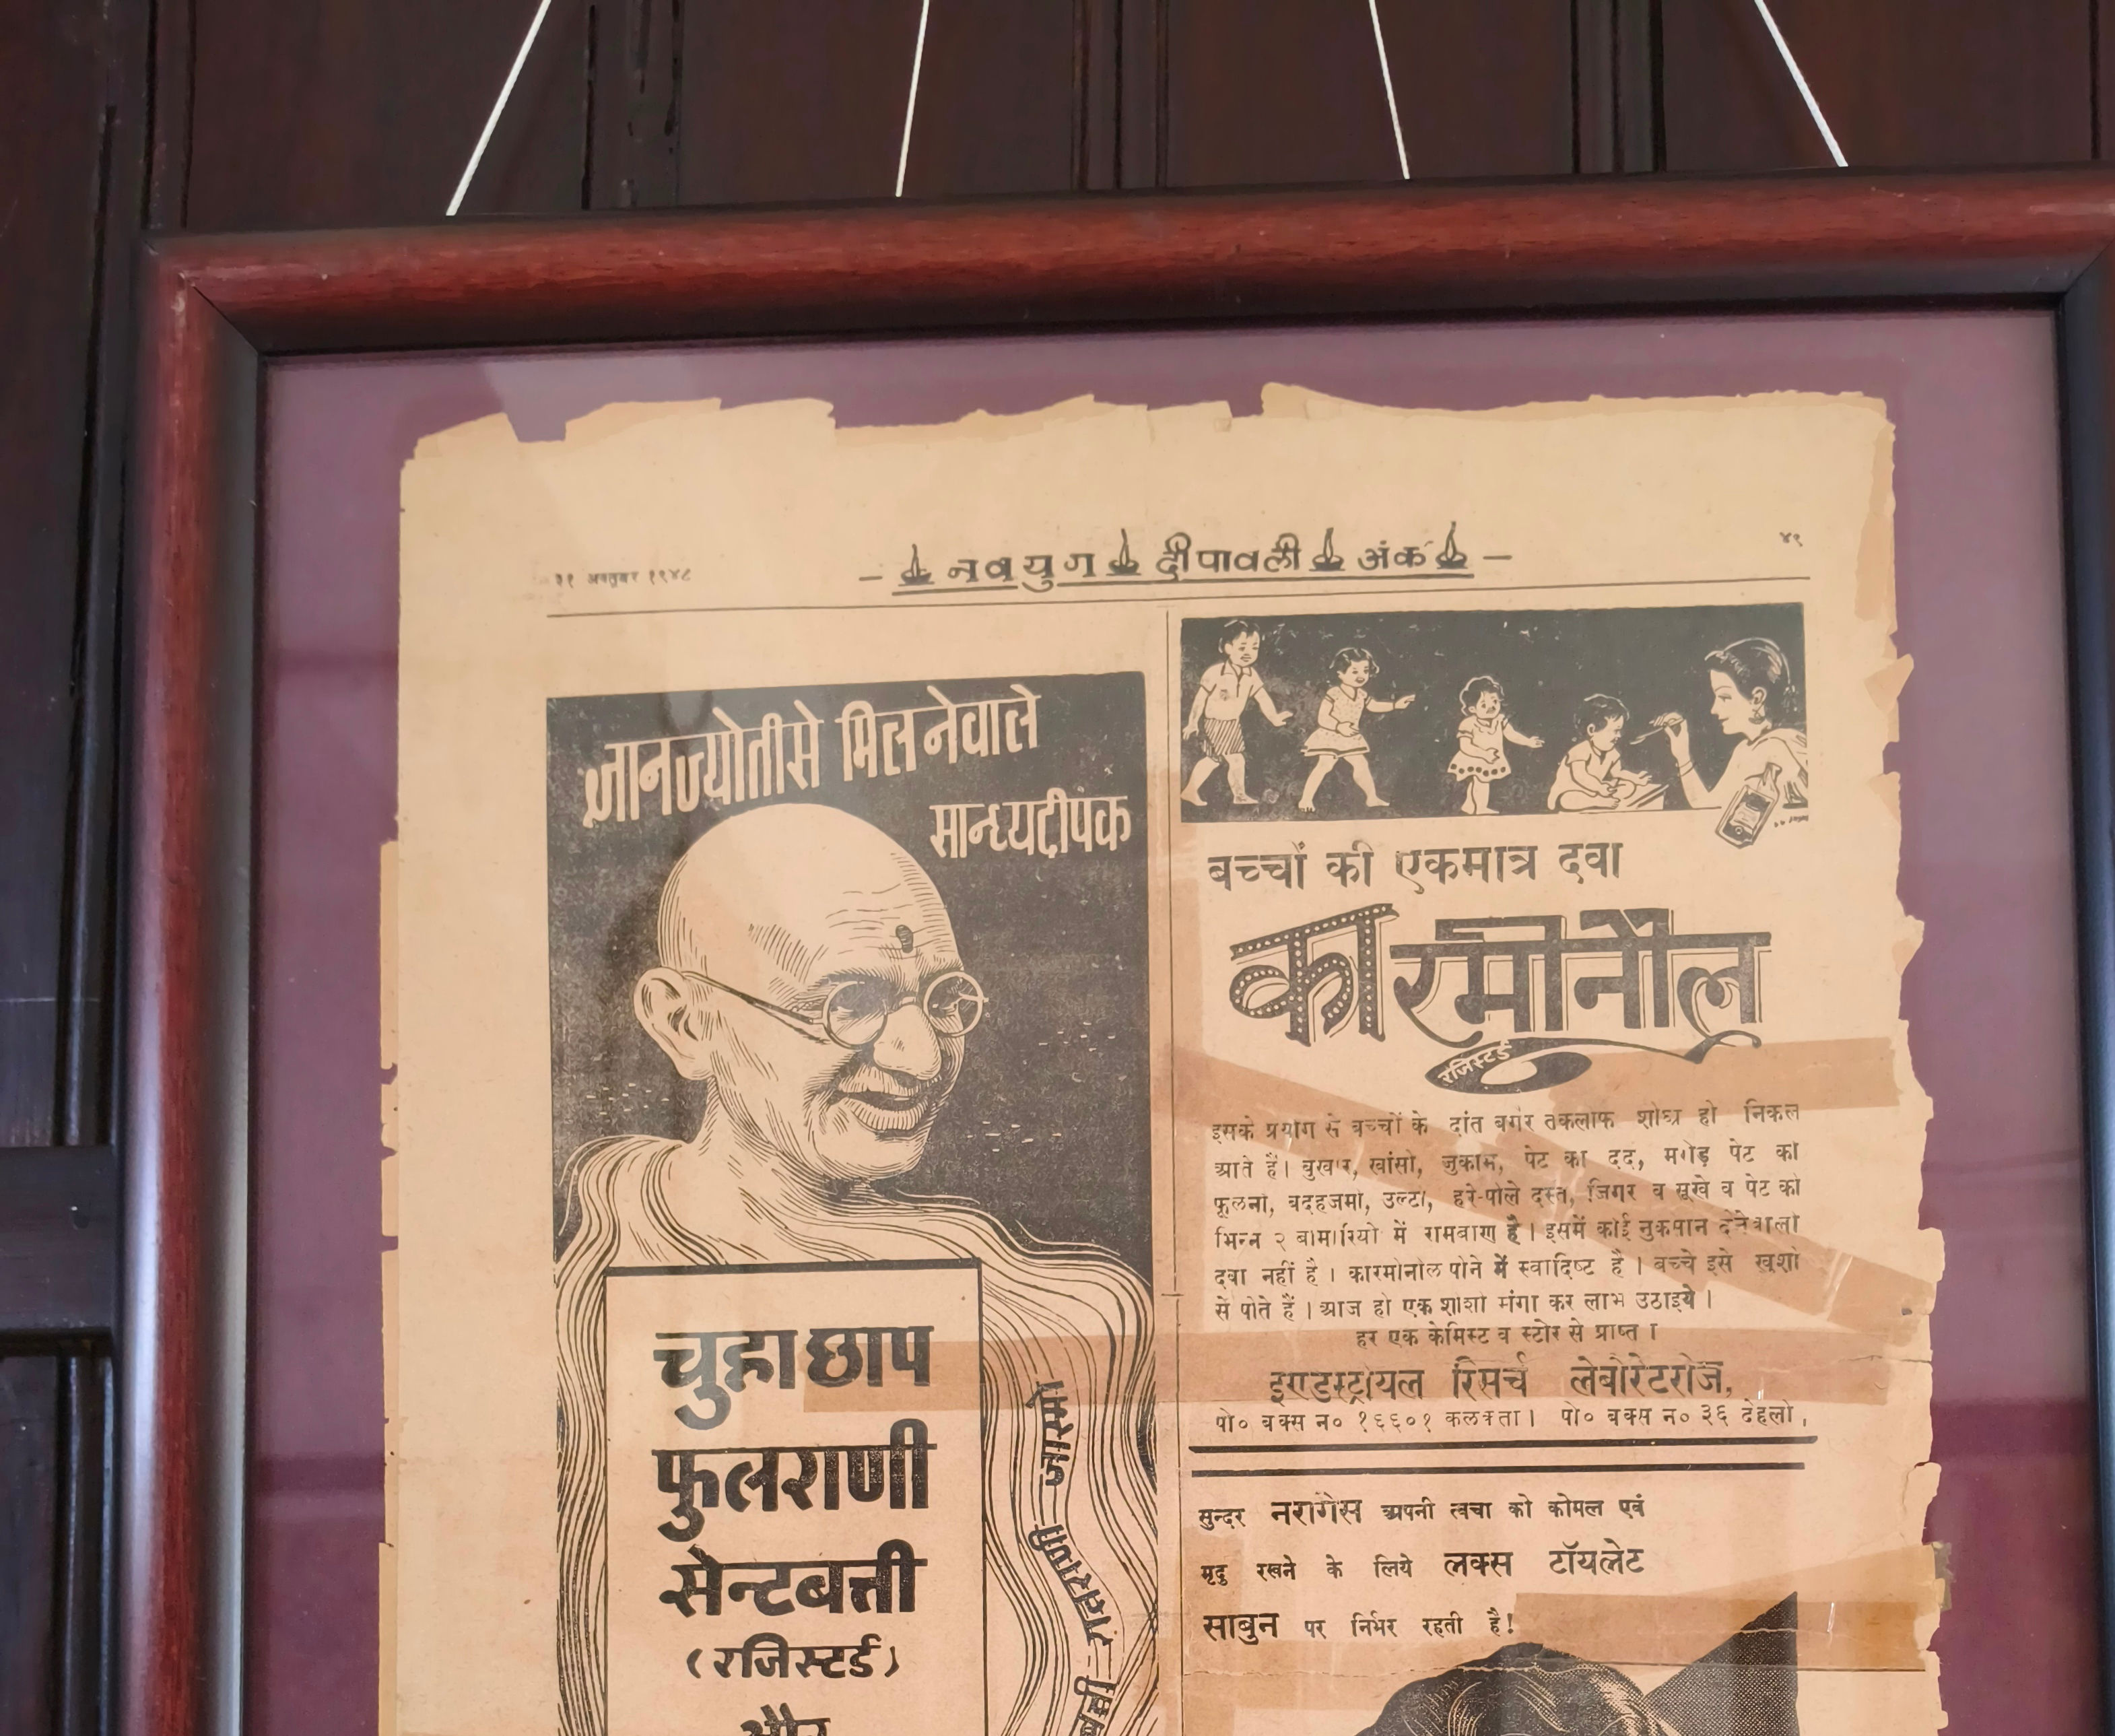 ३१ अक्तूबर १९४८
नवयुग दीपावली अंक
४९
ज्ञानज्योतीसे मिलनेवाले
सान्ध्यदीपक
चुहा छाप
फुलराणी
सेन्टबत्ती
(रजिस्टर्ड)
और
बच्चों की एकमात्र दवा
कारमीनौल
रजिस्टर्ड
इसके प्रयोग से बच्चों के दांत बगैर तकलीफ शीघ्र ही निकल
आते हैं। बुखार, खांसी, जुकाम, पेट का दर्द, मरोड़ पेट का
फूलना, बदहजमी, उल्टी, हरे-पीले दस्त, जिगर व सूखे व पेट की
भिन्न २ बीमारियों में रामबाण है। इसमें कोई नुकसान देनेवाली
दवा नहीं है। कारमीनोल पीने में स्वादिष्ट है। बच्चे इसे खुशी
से पीते हैं। आज ही एक शीशी मंगा कर लाभ उठाइये।
हर एक केमिस्ट व स्टोर से प्राप्त।
इण्डस्ट्रीयल रिसर्च लेबोरेटरीज,
पो० बक्स न० १६६०१ कलकत्ता। पो० बक्स न० ३६ देहली,
सुन्दर नरगिस अपनी त्वचा को कोमल एवं
मृदु रखने के लिये लक्स टॉयलेट
साबुन पर निर्भर रहती है!